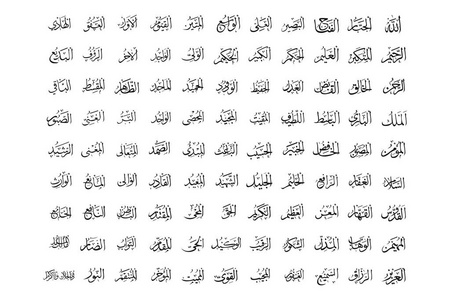 الله الجبار الفتاح البصير العلي الواسع المتين القيوم الأول العفو الهادي
الرحيم المتكبر العليم الحكم الكبير الحكيم الولي الواجد الآخر الرؤوف البديع
الرحمن الخالق القابض العدل الحفيظ الودود الحميد الظاهر المقسط الباقي
الملك البارئ الباسط اللطيف المقيت المجيد المحصي الواحد البر الغني الصبور
المؤمن المصور الخافض الخبير الحسيب الباعث المبدئ الصمد المتعالي المغني الرشيد
السلام الغفار الرافع الحليم الجليل الشهيد المعيد القادر الوالي المانع الوارث
القدوس القهار المعز العظيم الكريم الحق المحيي المقتدر الباطن النافع الجامع
المهيمن الوهاب المذل الشكور الرقيب الوكيل الحي المقدم التواب الضار مالك الملك
العزيز الرزاق السميع الغفور المجيب القوي المميت المؤخر المنتقم النور ذو الجلال والإكرام